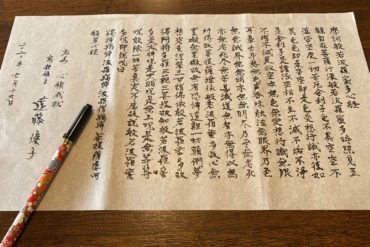 摩訶般若波羅蜜多心経
観自在菩薩行深般若波羅蜜多時照見五
蘊皆空度一切苦厄舎利子色不異空空不
異色色即是空空即是色受想行識亦復如
是舎利子是諸法空相不生不滅不垢不浄
不増不減是故空中無色無受想行識無眼
耳鼻舌身意無色声香味触法無眼界乃至
無意識界無無明亦無無明尽乃至無老死
亦無老死尽無苦集滅道無智亦無得以無
所得故菩提薩埵依般若波羅蜜多故心無
罣礙無罣礙故無有恐怖遠離一切顛倒夢
想究竟涅槃三世諸仏依般若波羅蜜多故
得阿耨多羅三藐三菩提故知般若波羅蜜
多是大神呪是大明呪是無上呪是無等等
呪能除一切苦真実不虚故説般若波羅蜜
多呪即説呪曰
羯諦羯諦波羅羯諦波羅僧羯諦菩提薩婆訶
般若心経
為 心願成就
優子
七月十